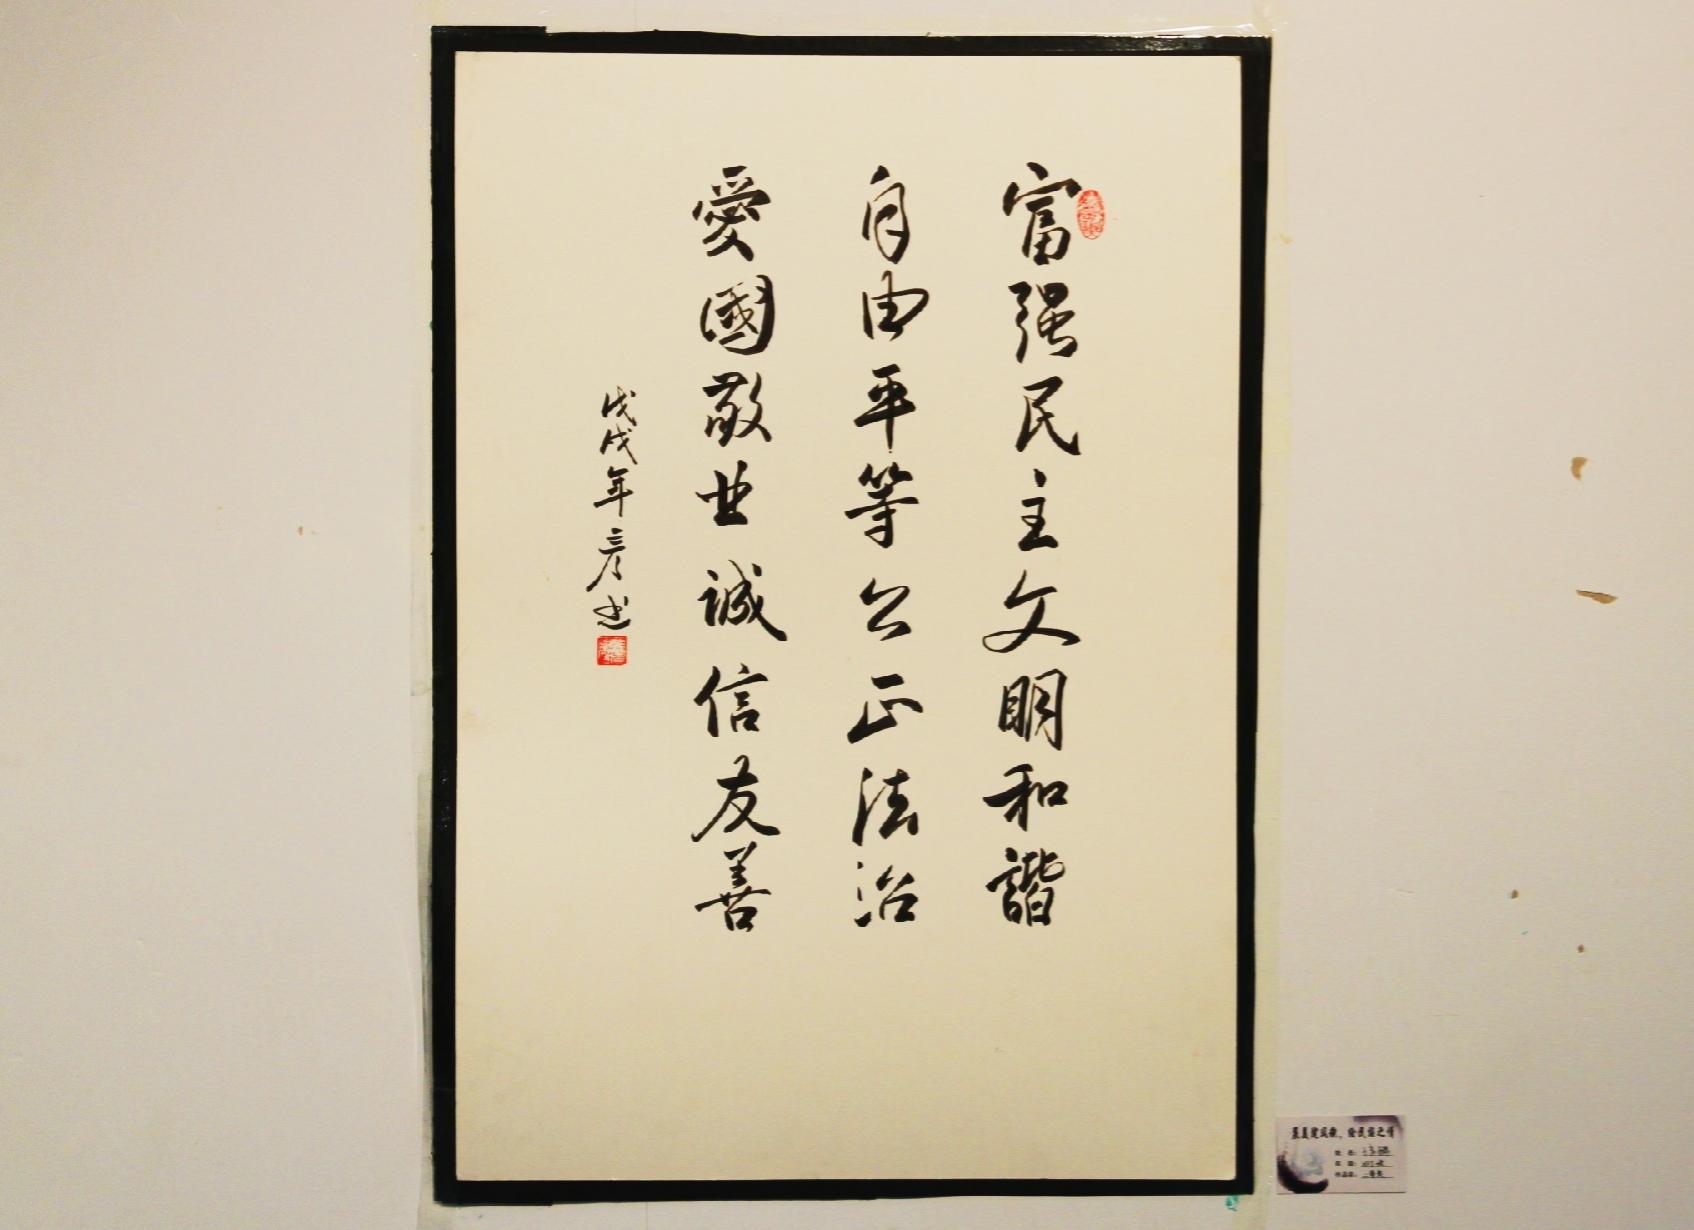 富强民主文明和谐
自由平等公正法治
愛國敬业诚信友善
戊戌年彦书